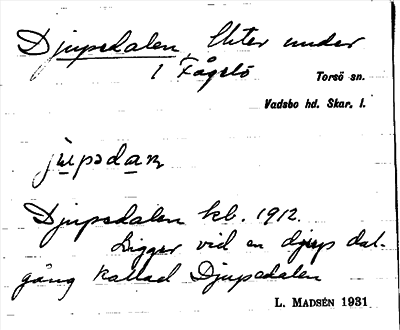 Djupsdalen, Uter under
1 Fågelö
Torsö sn.
Vadsbo hd. Skar. l.
jupsdan
Djupsdalen kb. 1912.
Ligger vid en djup dal-
gång kallad Djupsdalen
L. MADSÉN 1931